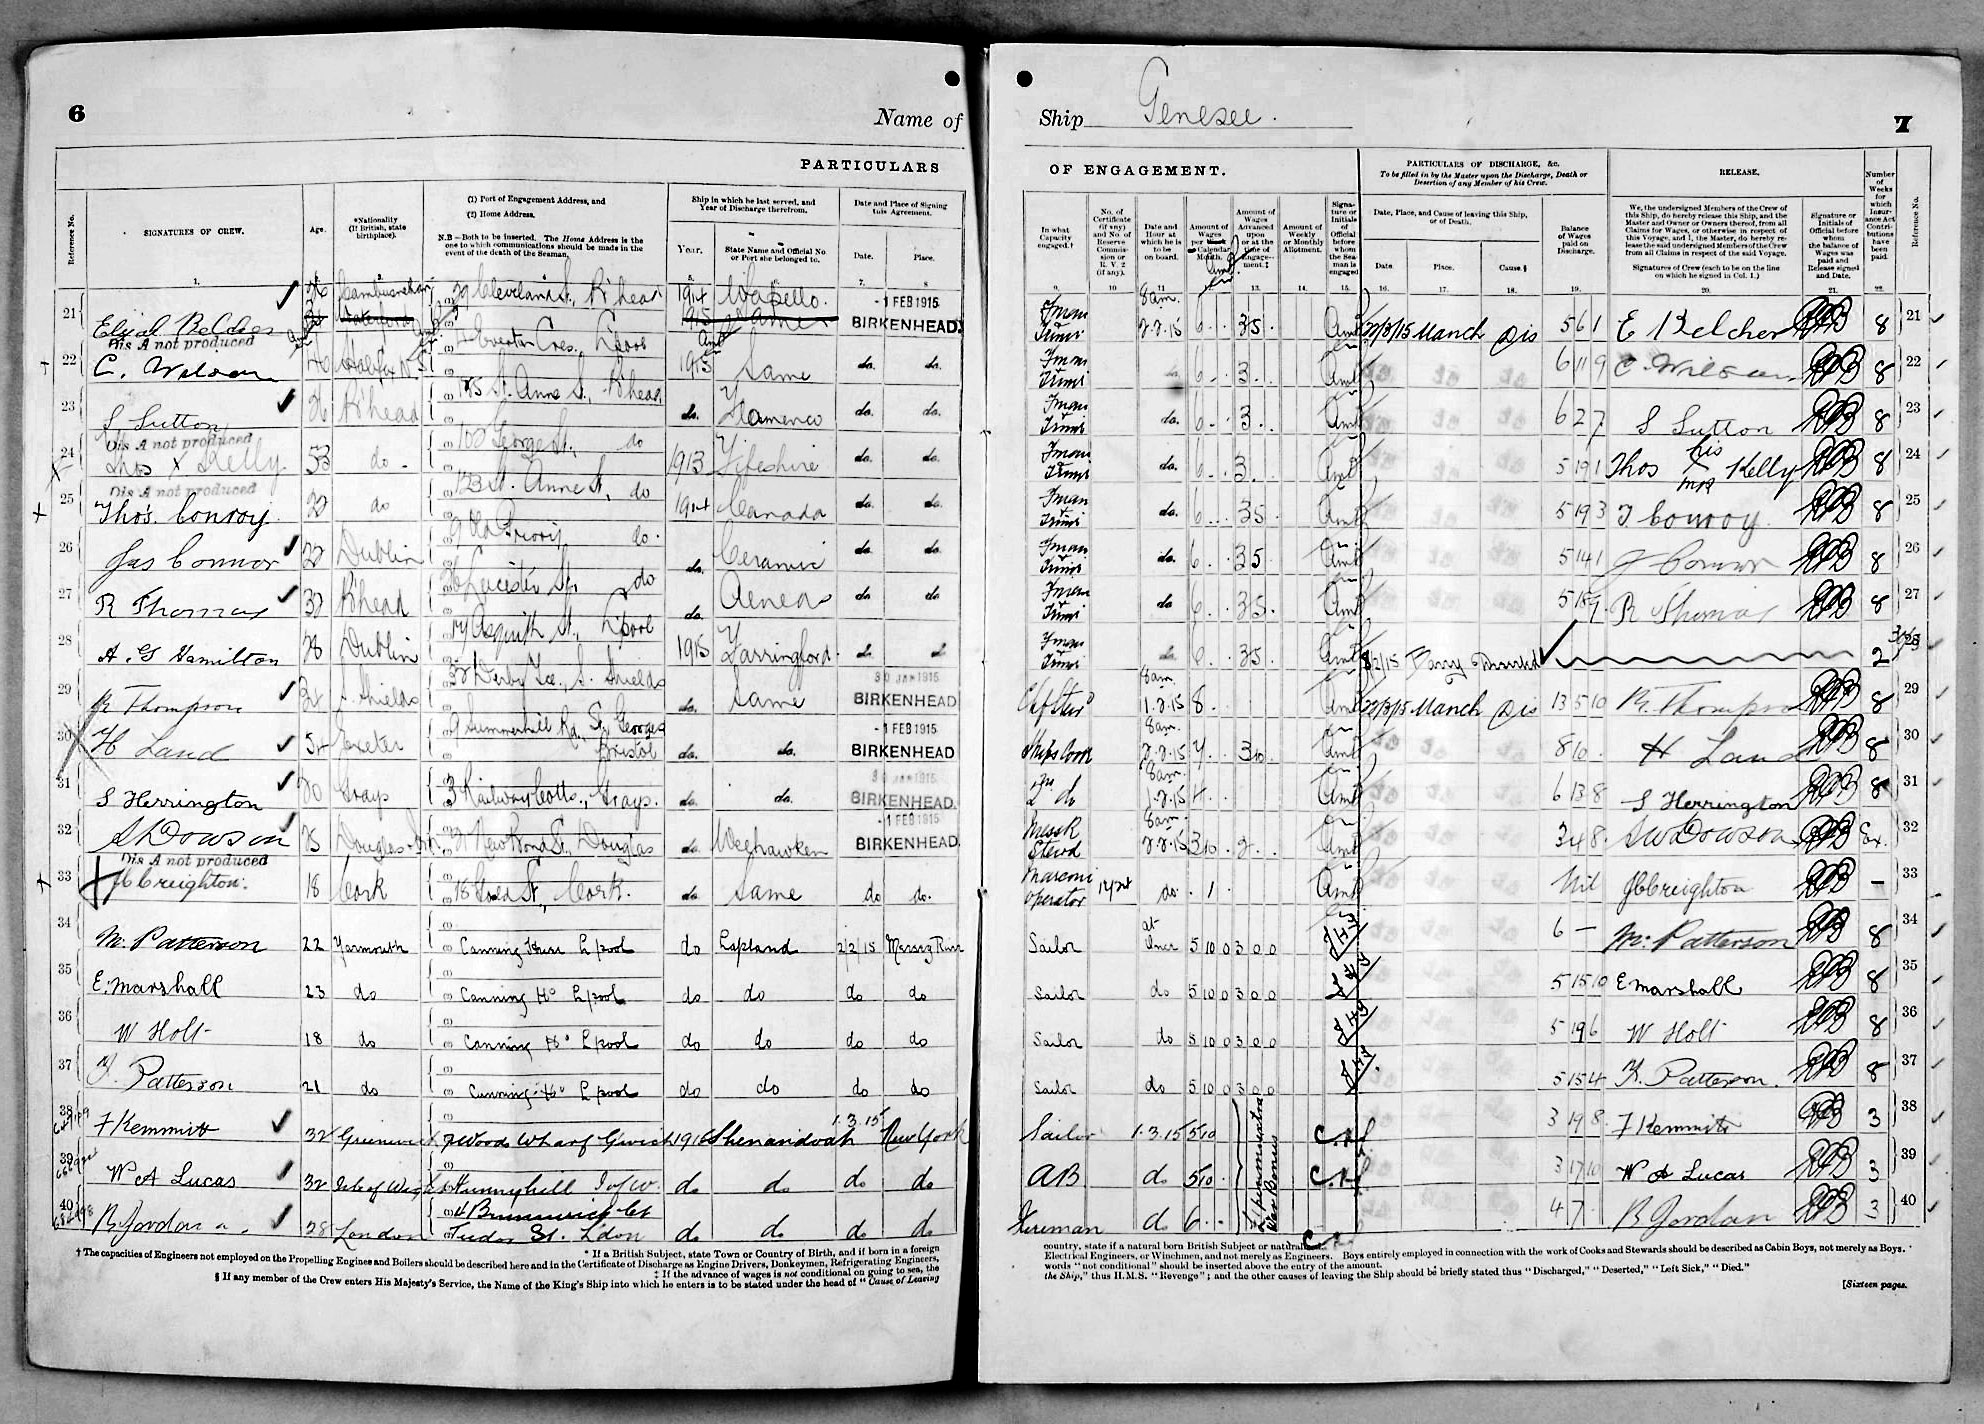 6
Name of
PARTICULARS
Reference No.
SIGNATURES OF CREW.
Age.
*Nationality
(If British, state
birthplace).
(1) Port of Engagement Address, and
(2) Home Address.
N.B—Both to be inserted. The Home Address is the
one to which communications should be made in the
event of the death of the Seaman.
Ship in which he last served, and
Year of Discharge therefrom.
Year.
State Name and Official No.
or Port she belonged to.
Date and Place of Signing
this Agreement.
Date.
Place.
1. 4. 5. 6. 7. 8
21 26 29 Cleveland St., B'head 1914 Wapello. - 1 FEB 1915 BIRKENHEAD
Dis A not produced
22 C. Wilson Halifax N.S. Everton Cres. L'pool 1915 Same do. do.
23 S Sutton 26 B'head 185 St. Anne St., B'head do. Flamenco do. do.
Dis A not produced
24 Thos x Kelly 53 do. 100 George St., do 1913 Fifeshire do. do.
Dis A not produced
25 Thos. Conroy. do 123 St. Anne St, do 1914 Canada do. do.
26 Jas Connor Dublin Old Priory do. do. Ceramic do. do.
27 R Thomas B'head St. do do. Aeneas do do
28 A. G Hamilton 28 Dublin Asquith St., L'pool 1915 Yarringford. do. do
29 R Thompson S. Shields 32 Derby Tce., S. Shields do. Same 30 JAN 1915 BIRKENHEAD
30 H Land 54 Exeter 9 Summerhill Rd, St. Georges Bristol do. do. - 1 FEB 1915 BIRKENHEAD
31 S Herrington 20 Grays 3 Railway Cotts., Grays. do. do. 30 JAN 1915 BIRKENHEAD.
32 S W Dowson 25 Douglas New Bond St., Douglas do Weehawken - 1 FEB 1915 BIRKENHEAD.
Dis A not produced
33 J C Creighton. 18 Cork St, Cork. do. Same do do.
34 M. Patterson 22 Yarmouth Canning House L/pool do Lapland 2/2/15 Mersey River
35 E. Marshall 23 do Canning Ho L/pool do do do do
36 W Holt 18 do Canning Ho L/pool do do do do
37 F. Patterson 21 do Canning Ho L/pool do do do do
38 F Kemmitt 32 Greenwich 7 Woods Wharf Gwich 1915 Shenandoah 1.3.15 New York
39 W A Lucas 32 Isle of Wight Sunnyhill I of W. do do do do
40 B Jordan 28 London 4 Brunswick Ct Tudor St. L'don do do do do
† The capacities of Engineers not employed on the Propelling Engines and Boilers should be described here and in the Certificate of Discharge as Engine Drivers, Donkeymen, Refrigerating Engineers,
* If a British Subject, state Town or Country of Birth, and if born in a foreign
‡ If the advance of wages is not conditional on going to sea, the
§ If any member of the Crew enters His Majesty's Service, the Name of the King's Ship into which he enters is to be stated under the head of "Cause of Leaving
Ship Genesee.
7
OF ENGAGEMENT.
PARTICULARS OF DISCHARGE, &c.
To be filled in by the Master upon the Discharge, Death or
Desertion of any Member of his Crew.
RELEASE.
In what
Capacity
engaged.†
No. of
Certificate
(if any)
and No. of
Reserve
Commis-
sion or
R. V. 2
(if any).
Date and
Hour at
which he is
to be
on board.
Amount of
Wages
per Calendar
Month.
Amount of
Wages
Advanced
upon
or at the
time of
Engage-
ment.‡
Amount of
Weekly
or Monthly
Allotment.
Signa-
ture or
Initials
of
Official
before
whom
the Sea-
man is
engaged
Date, Place, and Cause of leaving this Ship,
or of Death.
Date.
Place.
Cause.§
Balance
of Wages
paid on
Discharge.
We, the undersigned Members of the Crew of
this Ship, do hereby release this Ship, and the
Master and Owner or Owners thereof, from all
Claims for Wages, or otherwise in respect of
this Voyage, and I, the Master, do hereby re-
lease the said undersigned Members of the Crew
from all Claims in respect of the said Voyage.
Signatures of Crew (each to be on the line
on which he signed in Col. 1.)
Signature or
Initials of
Official before
whom
the balance of
Wages was
paid and
Release signed
and Date.
Number
of
Weeks
for
which
Insur-
ance Act
Contri-
butions
have
been
paid.
Reference No.
9. 10 11 13. 14. 15. 16. 17. 18. 19. 20. 21. 22.
Fman + Trimr 8am. 2.2.15 6 35 22/3/15 Manch Dis 5 6 1 E Belcher 8 21
Fman + Trimr do 6 3 6 11 9 C. Wilson 8 22
Fman + Trimr do. 6 3 6 2 7 S Sutton 8 23
Fman + Trimr do. 6 3 5 19 1 Thos his x mark Kelly 8 24
Fman + Trimr do. 6 35 5 19 3 T Conroy 8 25
Fman + Trimr do. 6 35 5 14 1 J Connor 8 26
Fman + Trimr do 6 35 R Thomas 8 27
Fman + Trimr do 6 35 8/2/15 2 28
8am. 1.2.15 8 22/3/15 Manch Dis 13 5 10 R. Thompson 8 29
Ships Cook 8am. 2.2.15 7 310 8 10 H Land 8 30
2nd do 8am. 1.2.15 4 6 13 8 S Herrington 8 31
MessR Stewd 8am. 2.2.15 3 10 2 3 4 8 S W Dowson Ex. 32
Marconi operator do. 1 Nil J C Creighton — 33
Sailor at once 5 10 0 3 0 0 6 — M. Patterson 8 34
Sailor do 5 10 0 3 0 0 5 15 10 E Marshall 8 35
Sailor do 5 10 0 3 0 0 5 19 6 W Holt 8 36
Sailor do 5 10 0 3 0 0 5 15 4 F. Patterson. 8 37
Sailor 1.3.15 5 10 3 19 8 F Kemmitt 3 38
AB do 5 10 3 17 10 W A Lucas 3 39
Fireman do 6 4 7 B Jordan 3 40
per month extra
War Bonus
country, state if a natural born British Subject or
Electrical Engineers, or Winchmen, and not merely as Engineers. Boys entirely employed in connection with the work of Cooks and Stewards should be described as Cabin Boys, not merely as Boys.
words "not conditional" should be inserted above the entry of the amount.
the Ship," thus H.M.S. "Revenge"; and the other causes of leaving the Ship should be briefly stated thus "Discharged," "Deserted," "Left Sick," "Died."
[Sixteen pages.